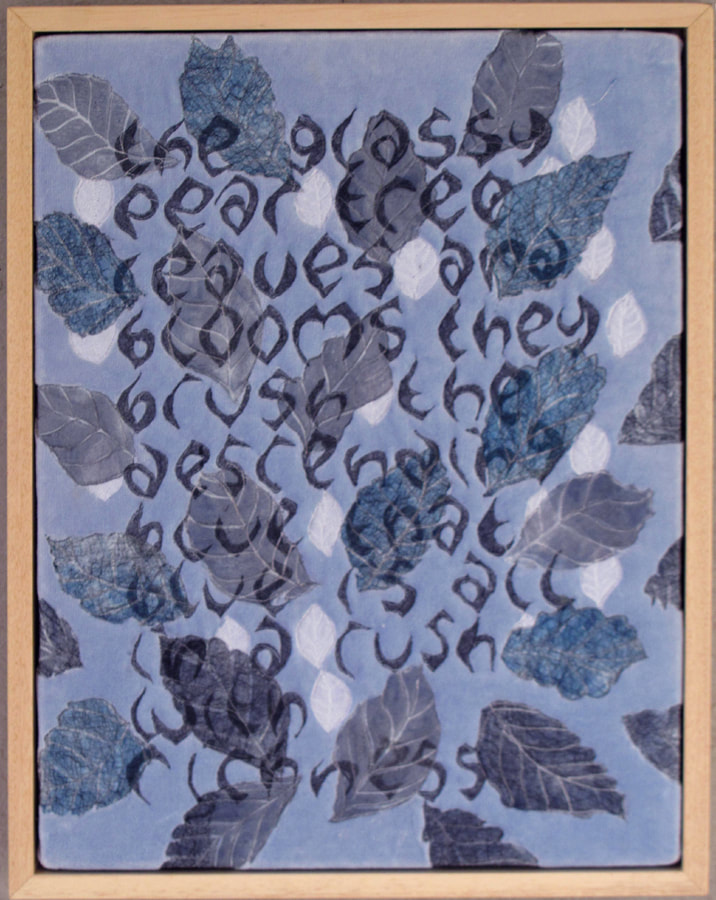 the glassy
pear tree
leaves and
blooms they
brush the
descending
blue that
blue is all
in a rush
with
richness